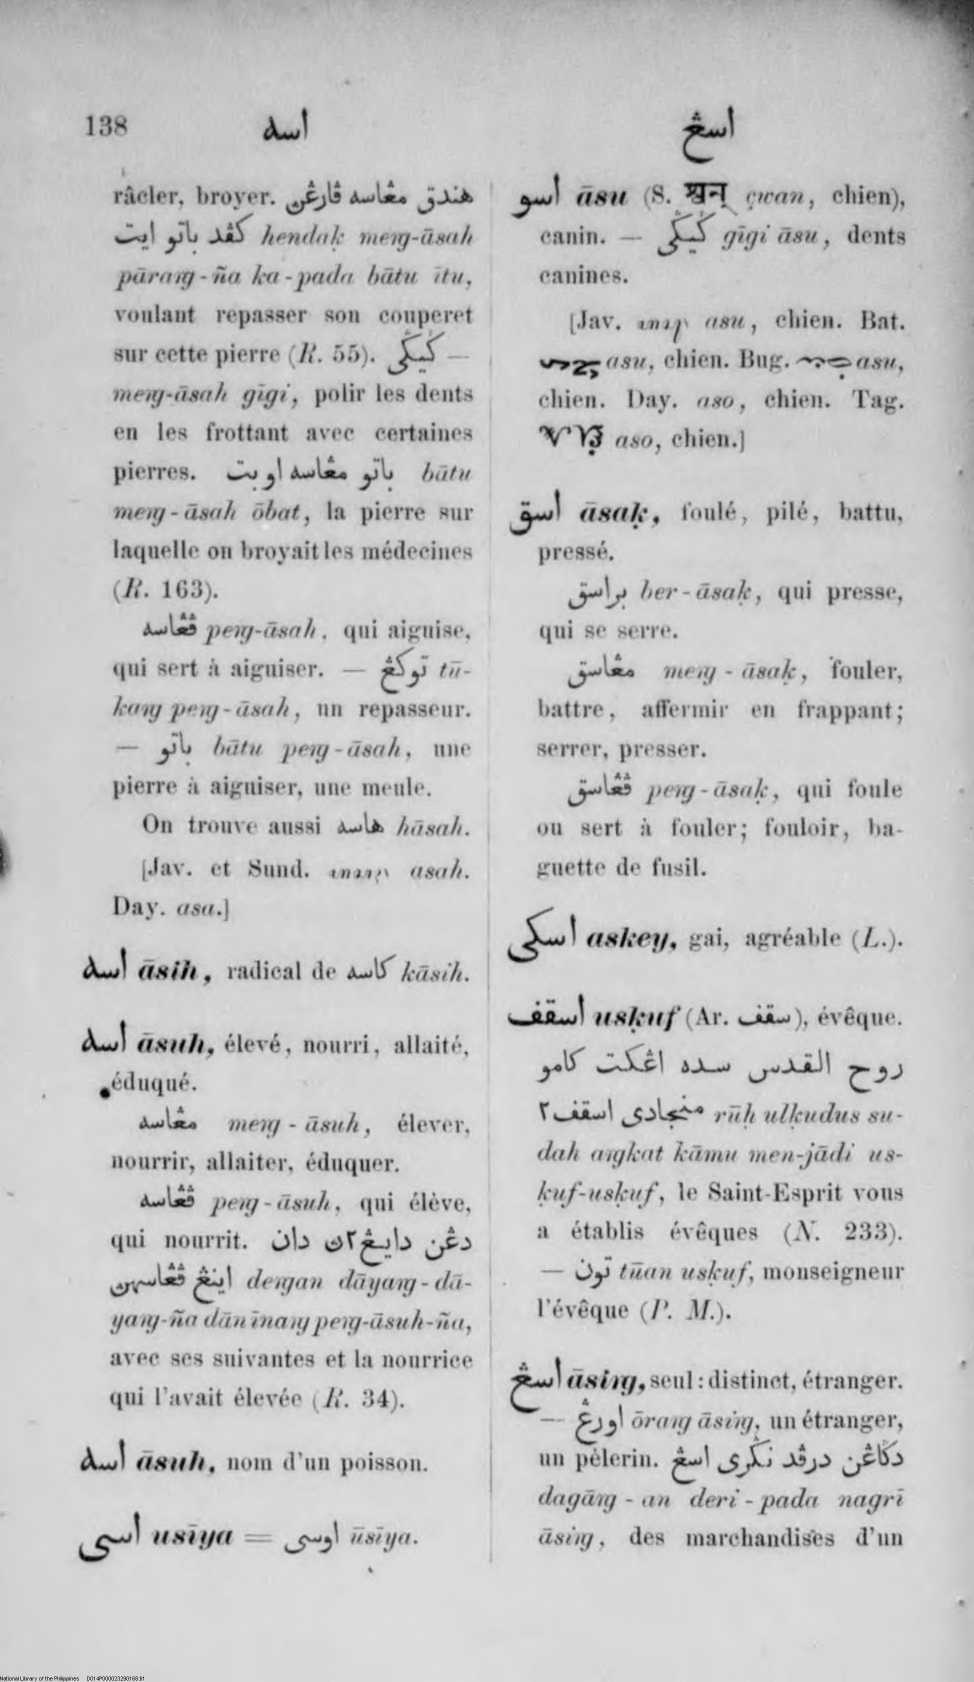 138
اسه
اسڠ
râcler, broyer. هندق مڠاسه ڤارڠن
كڤد باتو ايت hendaḳ meṇg-āsah
pāraṇg-ña ka-pada bātu ītu,
voulant repasser son couperet
sur cette pierre (R. 55). — ڬيڬي
meṇg-āsah gīgi, polir les dents
en les frottant avec certaines
pierres. باتو مڠاسه اوبت bātu
meṇg-āsah ōbat, la pierre sur
laquelle on broyait les médecines
(R. 163).
ڤڠاسه peṇg-āsah, qui aiguise,
qui sert à aiguiser. — توكڠ tū-
kaṇg peṇg-āsah, un repasseur.
— باتو bātu peṇg-āsah, une
pierre à aiguiser, une meule.
On trouve aussi هاسه hāsah.
[Jav. et Sund. asah.
Day. asa.]
اسه āsih, radical de كاسه kāsih.
اسه āsuh, élevé, nourri, allaité,
éduqué.
مڠاسه meṇg-āsuh, élever,
nourrir, allaiter, éduquer.
ڤڠاسه peṇg-āsuh, qui élève,
qui nourrit. دڠن دايڠ٢ن دان
اينڠ ڤڠاسهن deṇgan dāyaṇg-dā-
yaṇg-ña dān īnaṇg peṇg-āsuh-ña,
avec ses suivantes et la nourrice
qui l'avait élevée (R. 34).
اسه āsuh, nom d'un poisson.
اسي usīya = اوسي ūsīya.
اسو āsu (S. श्वन् çwan, chien),
canin. — ڬيڬي gīgi āsu, dents
canines.
[Jav. asu, chien. Bat.
asu, chien. Bug. asu,
chien. Day. aso, chien. Tag.
aso, chien.]
اسق āsaḳ, foulé, pilé, battu,
pressé.
براسق ber-āsaḳ, qui presse,
qui se serre.
مڠاسق meṇg-āsaḳ, fouler,
battre, affermir en frappant;
serrer, presser.
ڤڠاسق peṇg-āsaḳ, qui foule
ou sert à fouler; fouloir, ba-
guette de fusil.
اسكي askey, gai, agréable (L.).
اسقف usḳuf (Ar. سقف), évêque.
روح القدس سده اڠكت كامو
منجادي اسقف٢ rūḥ ulḳudus su-
dah aṇgkat kāmu men-jādi us-
ḳuf-usḳuf, le Saint-Esprit vous
a établis évêques (N. 233).
— تون tūan usḳuf, monseigneur
l'évêque (P. M.).
اسڠ āsiṇg, seul: distinct, étranger.
— اورڠ ōraṇg āsiṇg, un étranger,
un pèlerin. دڬاڠن درڤد نڬري اسڠ
dagāṇg-an deri-pada nagrī
āsiṇg, des marchandises d'un
National Library of the Philippines